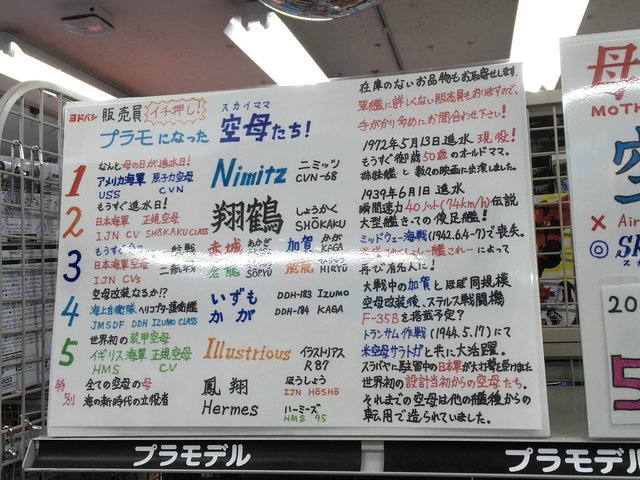 ヨドバシ 販売員 イチ押し!
プラモになった 空母たち!
スカイママ
在庫のないお品物もお取寄せします.
軍艦に詳しくない販売員もおりますので、
手がかり多めにお問合わせ下さい!
1 なんと母の日が進水日!
アメリカ海軍 原子力空母
USS CVN
Nimitz ニミッツ
CVN-68
1972年5月13日進水 現役!
もうすぐ御歳50歳のオールドママ。
姉妹艦と数々の映画に出演しました。
2 もうすぐ進水日!
日本海軍 正規空母
IJN CV SHŌKAKU CLASS
翔鶴 しょうかく
SHŌKAKU
1939年6月1日 進水
瞬間速力40ノット(74km/h)伝説
大型艦きっての俊足艦!
3 もうすぐ
日本海軍空母
IJN CVs
一航戦
二航戦
赤城 あかぎ
AKAGI
加賀 かが
KAGA
蒼龍 そうりゅう
SŌRYŪ
飛龍 ひりゅう
HIRYŪ
ミッドウェー海戦(1942.6.4-7)で喪失。
艦これ によって
再び有名人に!
4 空母改装なるか!?
海上自衛隊 ヘリコプター護衛艦
JMSDF DDH IZUMO CLASS
いずも DDH-183 IZUMO
かが DDH-184 KAGA
大戦中の加賀とほぼ同規模
空母改装後、ステルス戦闘機
F-35Bを搭載予定?
5 世界初の装甲空母
イギリス海軍 正規空母
HMS CV
Illustrious イラストリアス
R87
トランサム作戦(1944.5.17)にて
米空母サラトガと共に大活躍。
スラバヤに駐留中の日本軍が大打撃を受けました
特別 全ての空母の母
海の新時代の立役者
鳳翔 ほうしょう
IJN HŌSHŌ
Hermes ハーミーズ
HMS 95
世界初の設計当初からの空母たち。
それまでの空母は他の艦種からの
転用で造られていました。
母
MOTH
空
× Air
◎ SK
20
5
プラモデル
プラモデル